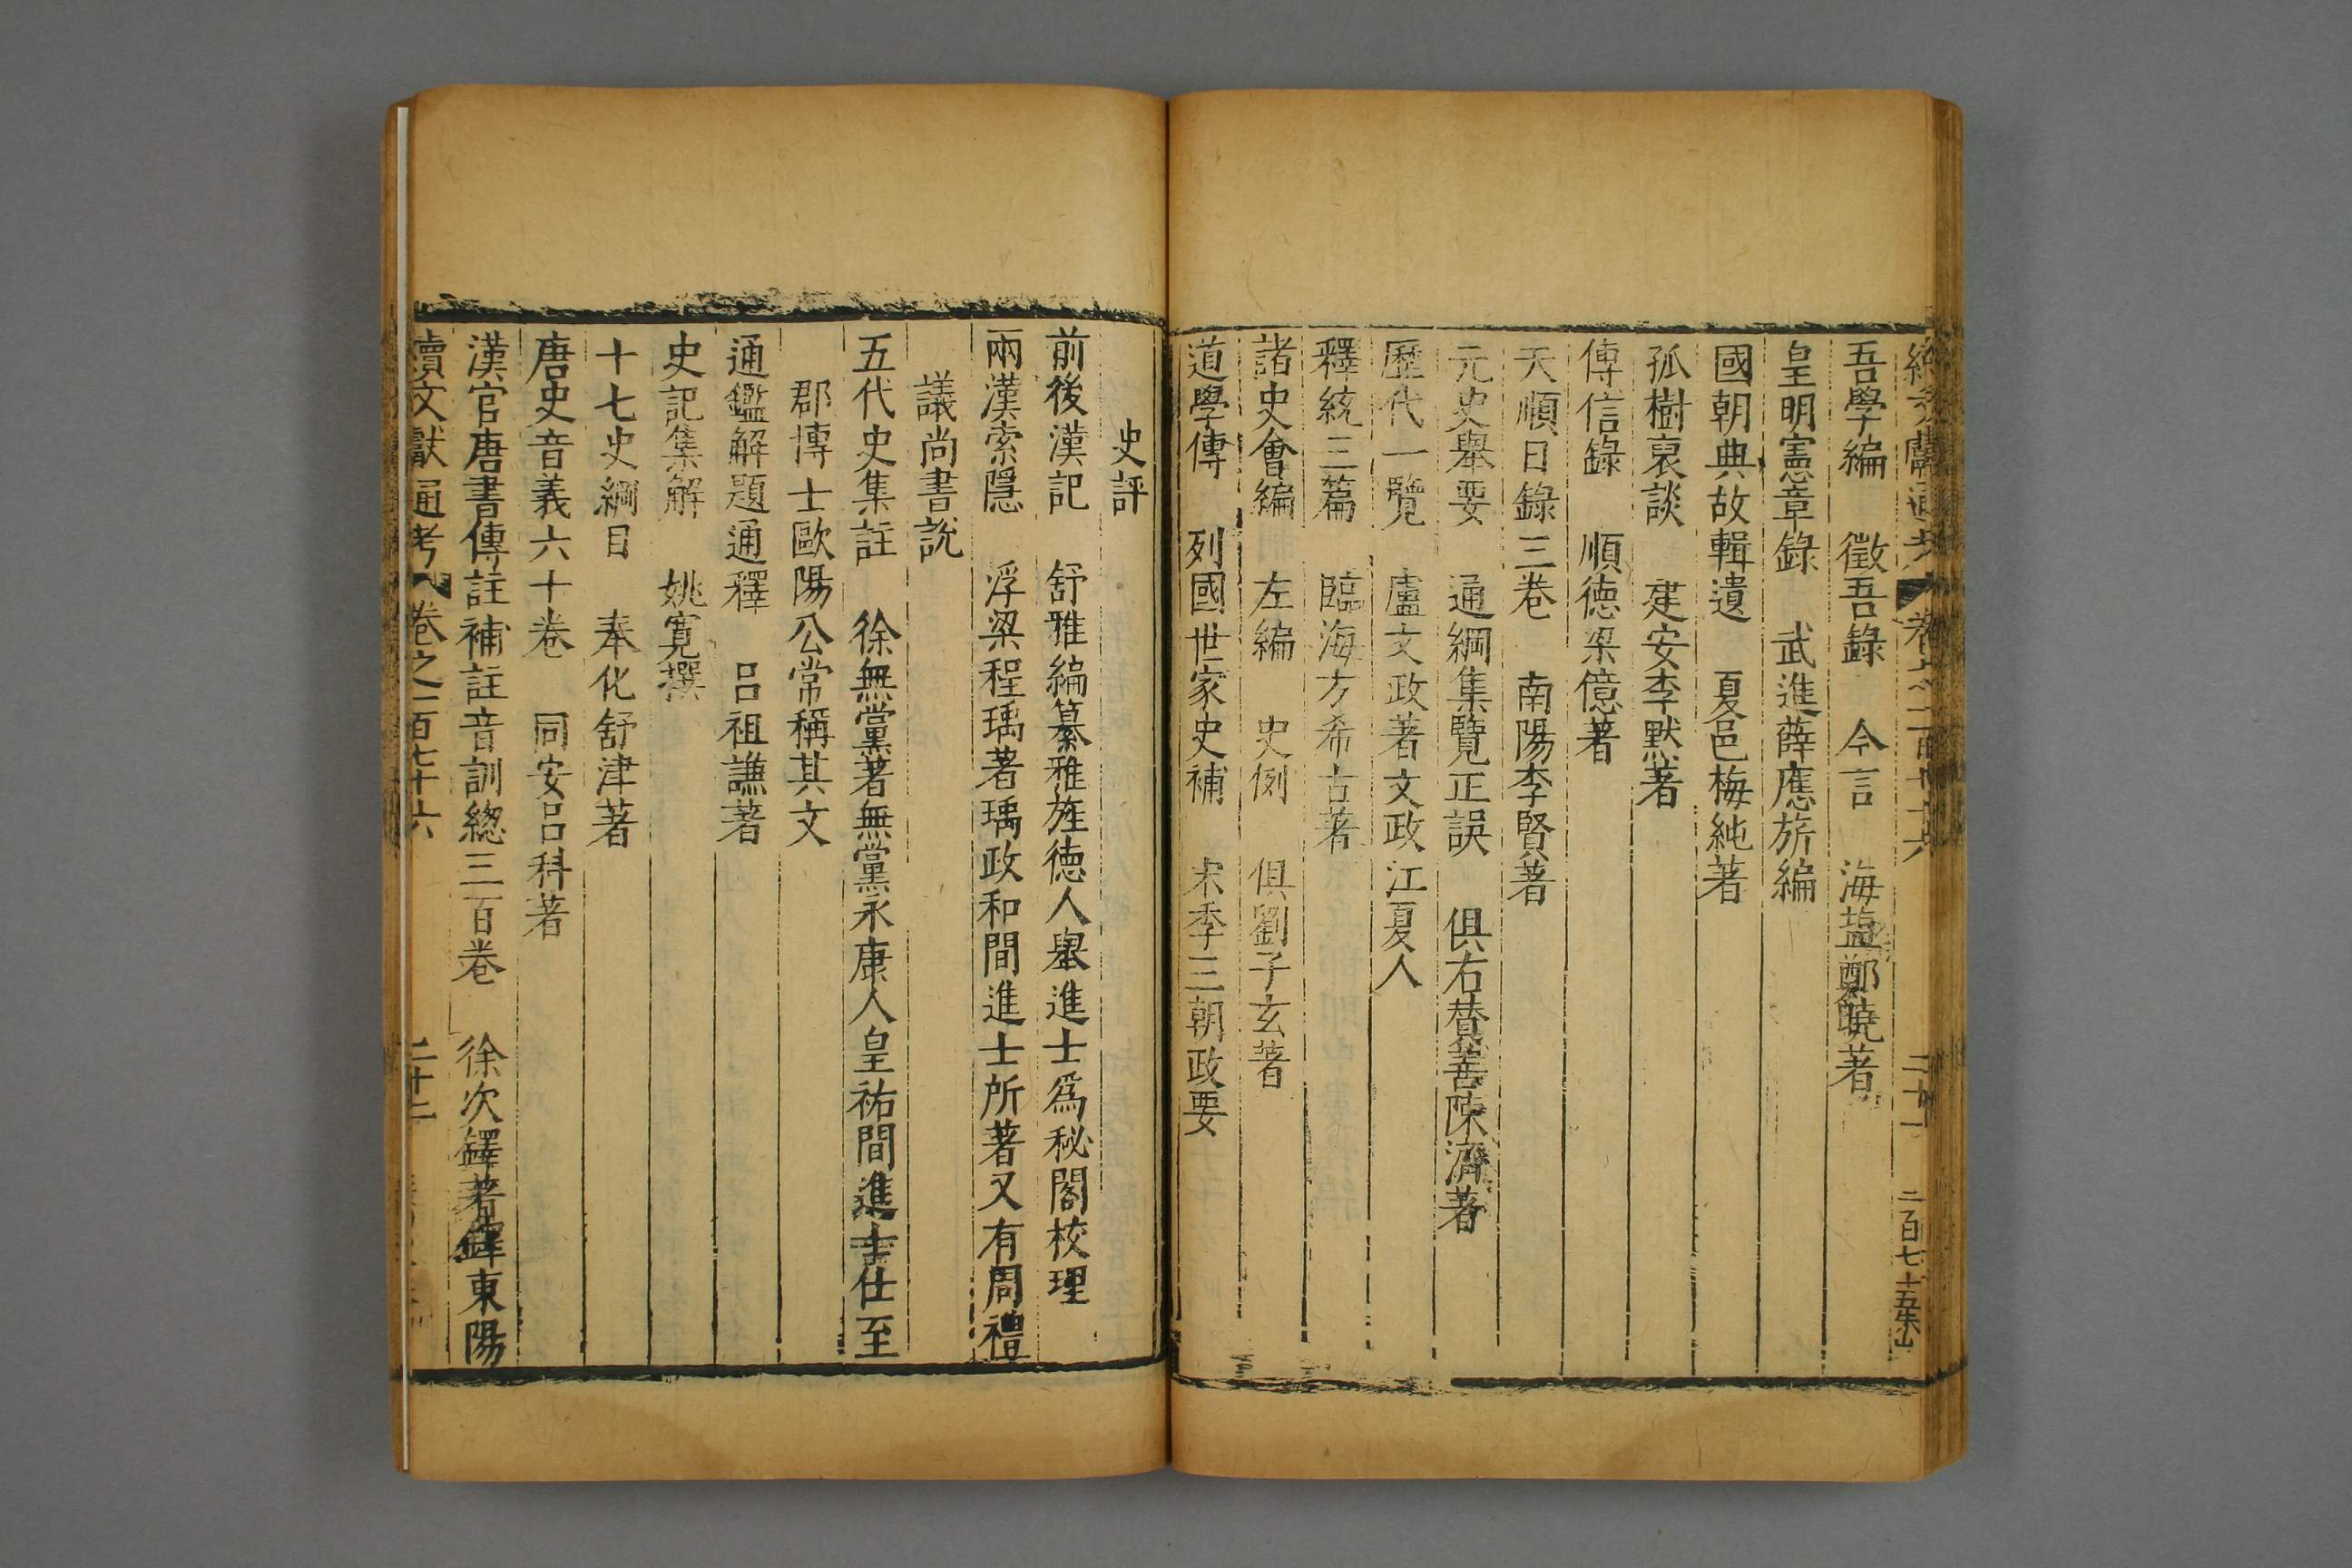 續文獻通考 卷之一百七十六 二十一 二百七十五
吾學編 徵吾錄 今言 海塩鄭曉著
皇明憲章錄 武進薛應旂編
國朝典故輯遺 夏邑梅純著
孤樹裒談 建安李默著
傳信錄 順德梁億著
天順日錄三卷 南陽李賢著
元史舉要 通綱集覽正誤 俱右賛善陳濟著
歷代一覽 盧文政著文政江夏人
釋統三篇 臨海方希古著
諸史會編 左編 史例 俱劉子玄著
道學傳 列國世家史補 宋季三朝政要
史評
前後漢記 舒雅編纂雅旌德人舉進士爲秘閣校理
兩漢索隱 浮梁程瑀著瑀政和間進士所著又有周禮
議尚書說
五代史集註 徐無黨著無黨永康人皇祐間進士仕至
郡博士歐陽公常稱其文
通鑑解題通釋 呂祖謙著
史記集解 姚寬撰
十七史綱目 奉化舒津著
唐史音義六十卷 同安呂科著
漢官唐書傳註補註音訓緫三百卷 徐次鐸著鐸東陽
續文獻通考 卷之一百七十六 二十二